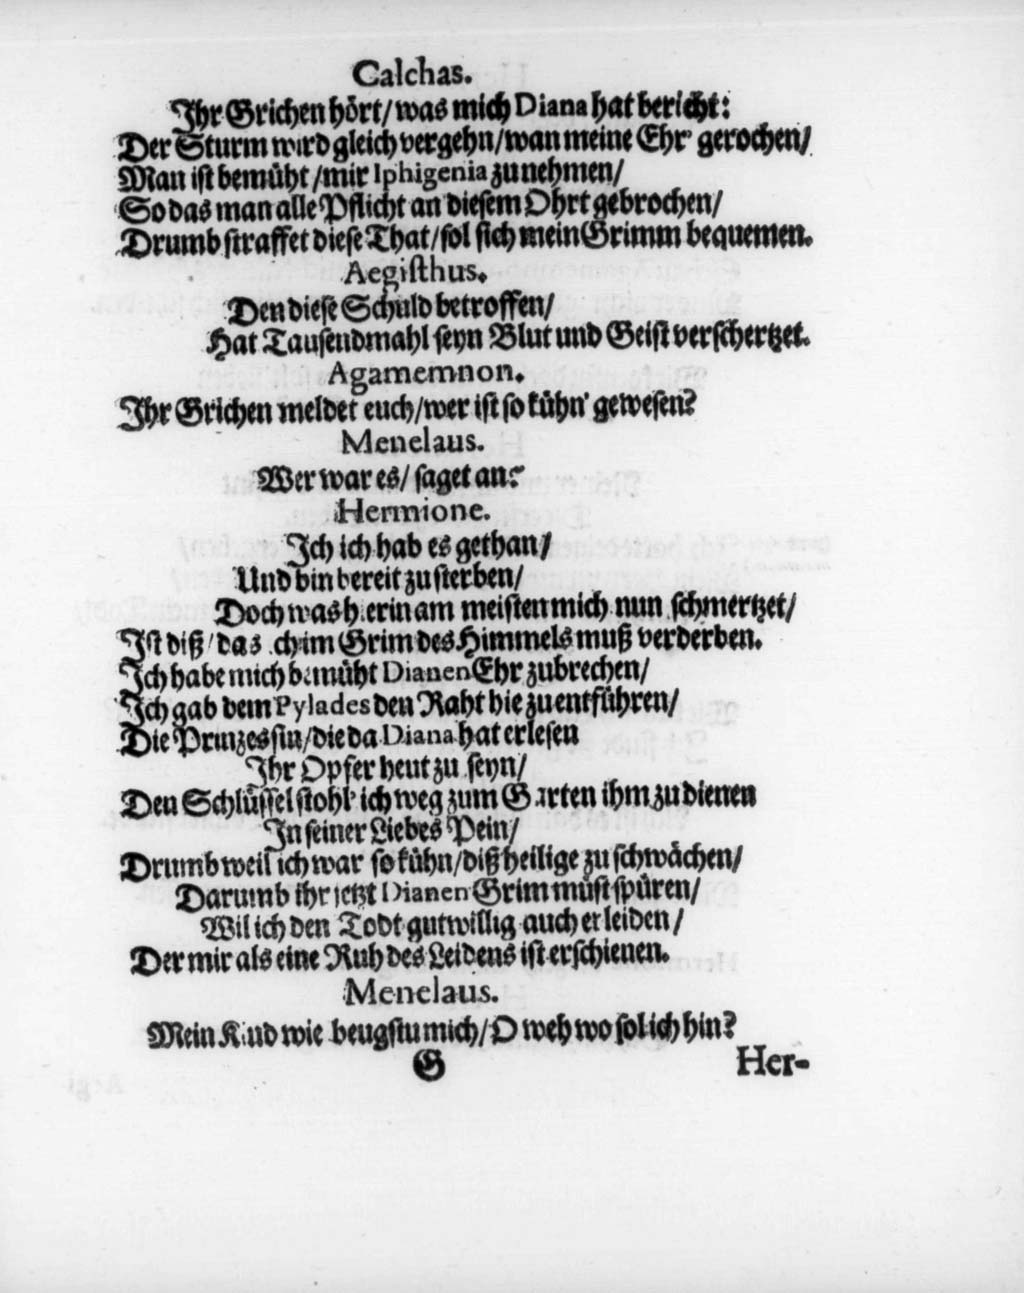 Calchas.
Ihr Grichen hört/was mich Diana hat bericht:
Der Sturm wird gleich vergehn/wan meine Ehr' gerochen/
Man ist bemüht/mir Iphigenia zunehmen/
So das man alle Pflicht an diesem Ohrt gebrochen/
Drumb straffet diese That/sol sich mein Grimm bequemen.
Aegisthus.
Den diese Schuld betroffen/
Hat Tausendmahl seyn Blut und Geist verschertzet.
Agamemnon.
Ihr Grichen meldet euch/wer ist so kühn' gewesen?
Menelaus.
Wer war es/ saget an?
Hermione.
Ich ich hab es gethan/
Und bin bereit zu sterben/
Doch was hierin am meisten mich nun schmertzet/
Ist diß/das ich im Grim des Himmels muß verderben.
Ich habe mich bemüht Dianen Ehr zubrechen/
Ich gab dem Pylades den Raht hie zu entführen/
Die Prinzessin/die da Diana hat erlesen
Ihr Opfer heut zu seyn/
Den Schlüssel stohl' ich weg zum Garten ihm zu dienen
In seiner Liebes Pein/
Drumb weil ich war so kühn/diß heilige zu schwächen/
Darumb ihr jetzt Dianen Grim müst spüren/
Wil ich den Todt gutwillig auch erleiden/
Der mir als eine Ruh des Leidens ist erschienen.
Menelaus.
Mein Kind wie beugstu mich/O weh wo sol ich hin?
G Her-